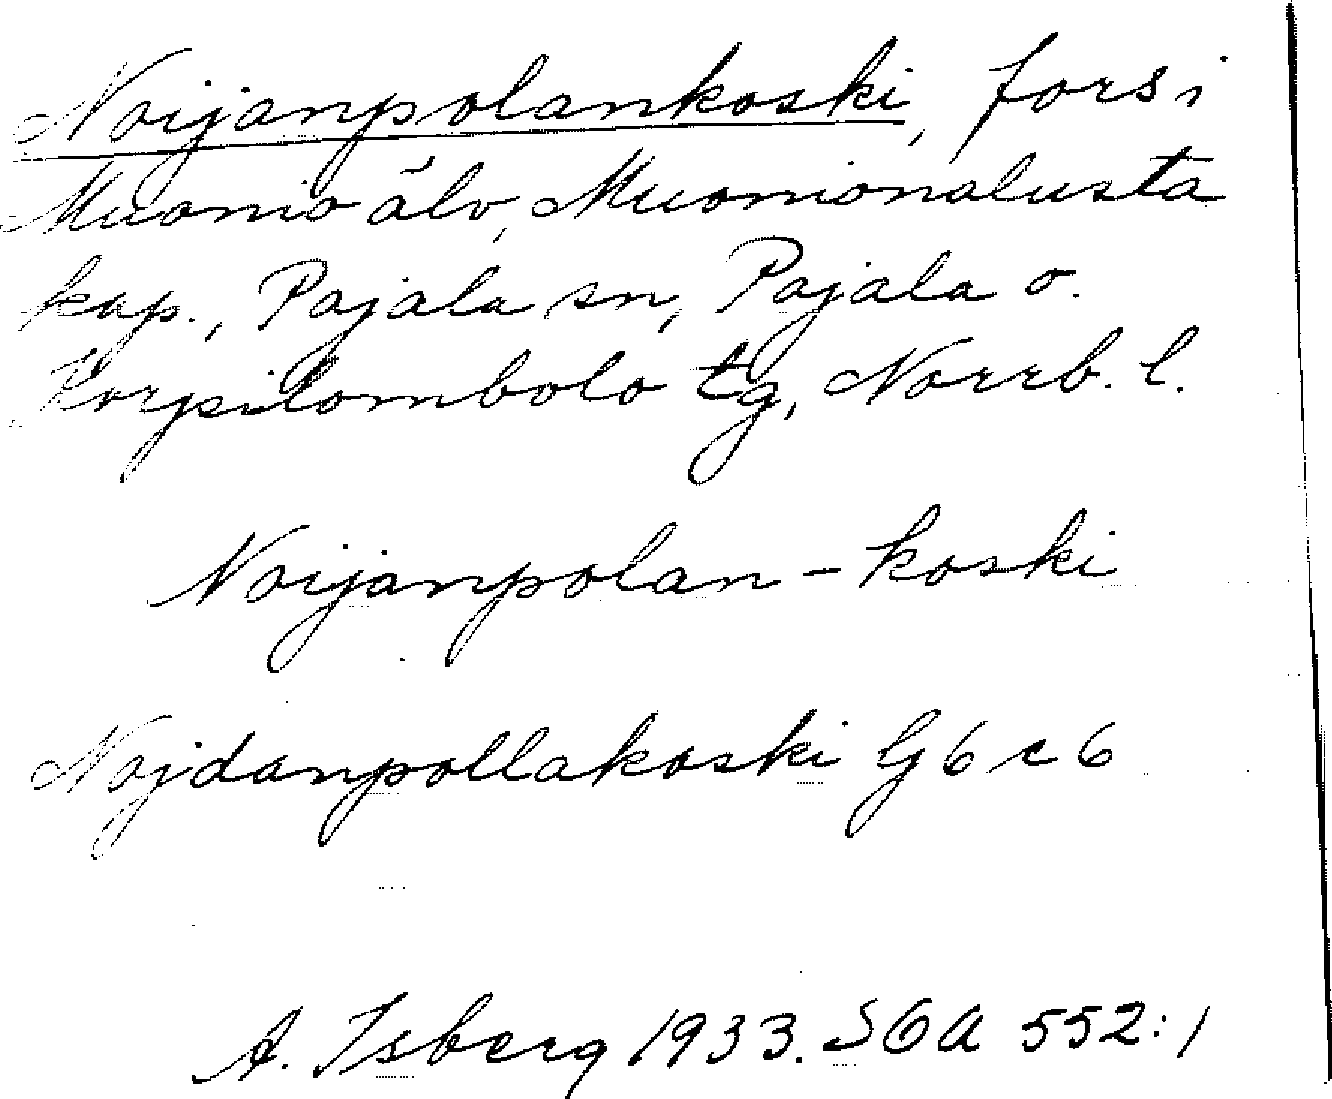 Noijanpolankoski, fors i
Muonio älv, Muonionalusta
kap., Pajala sn, Pajala o.
Korpilombolo tg, Norrb. l.
Noijanpolan-koski
Nojdanpollakoski G6c6
A. Isberg 1933. SOA 552:1